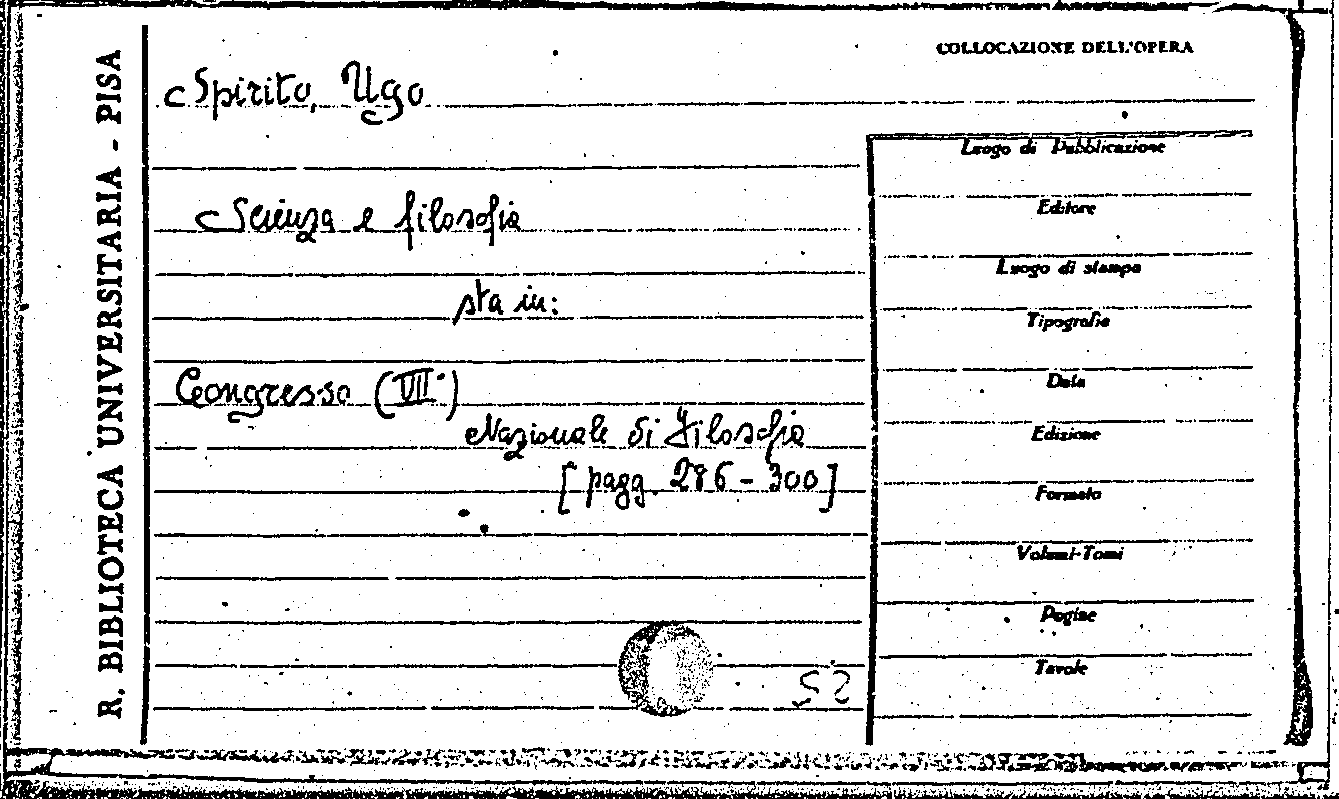 R. BIBLIOTECA UNIVERSITARIA - PISA
COLLOCAZIONE DELL'OPERA
Spirito, Ugo
Scienza e filosofia
sta in:
Congresso (VII°)
Nazionale di Filosofia
[pagg. 286-300]
Luogo di Pubblicazione
Editore
Luogo di stampa
Tipografia
Data
Edizione
Formato
Volumi-Tomi
Pagine
Tavole